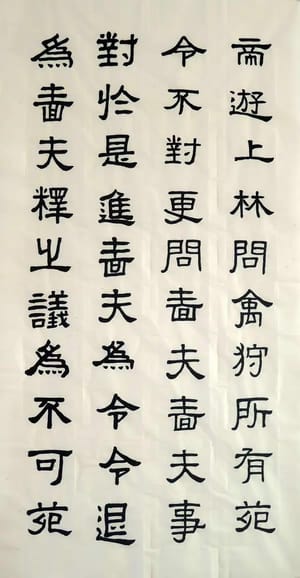 帝遊上林問禽狩所有苑
令不對更問嗇夫嗇夫事
對於是進嗇夫為令令退
為嗇夫釋之議為不可苑